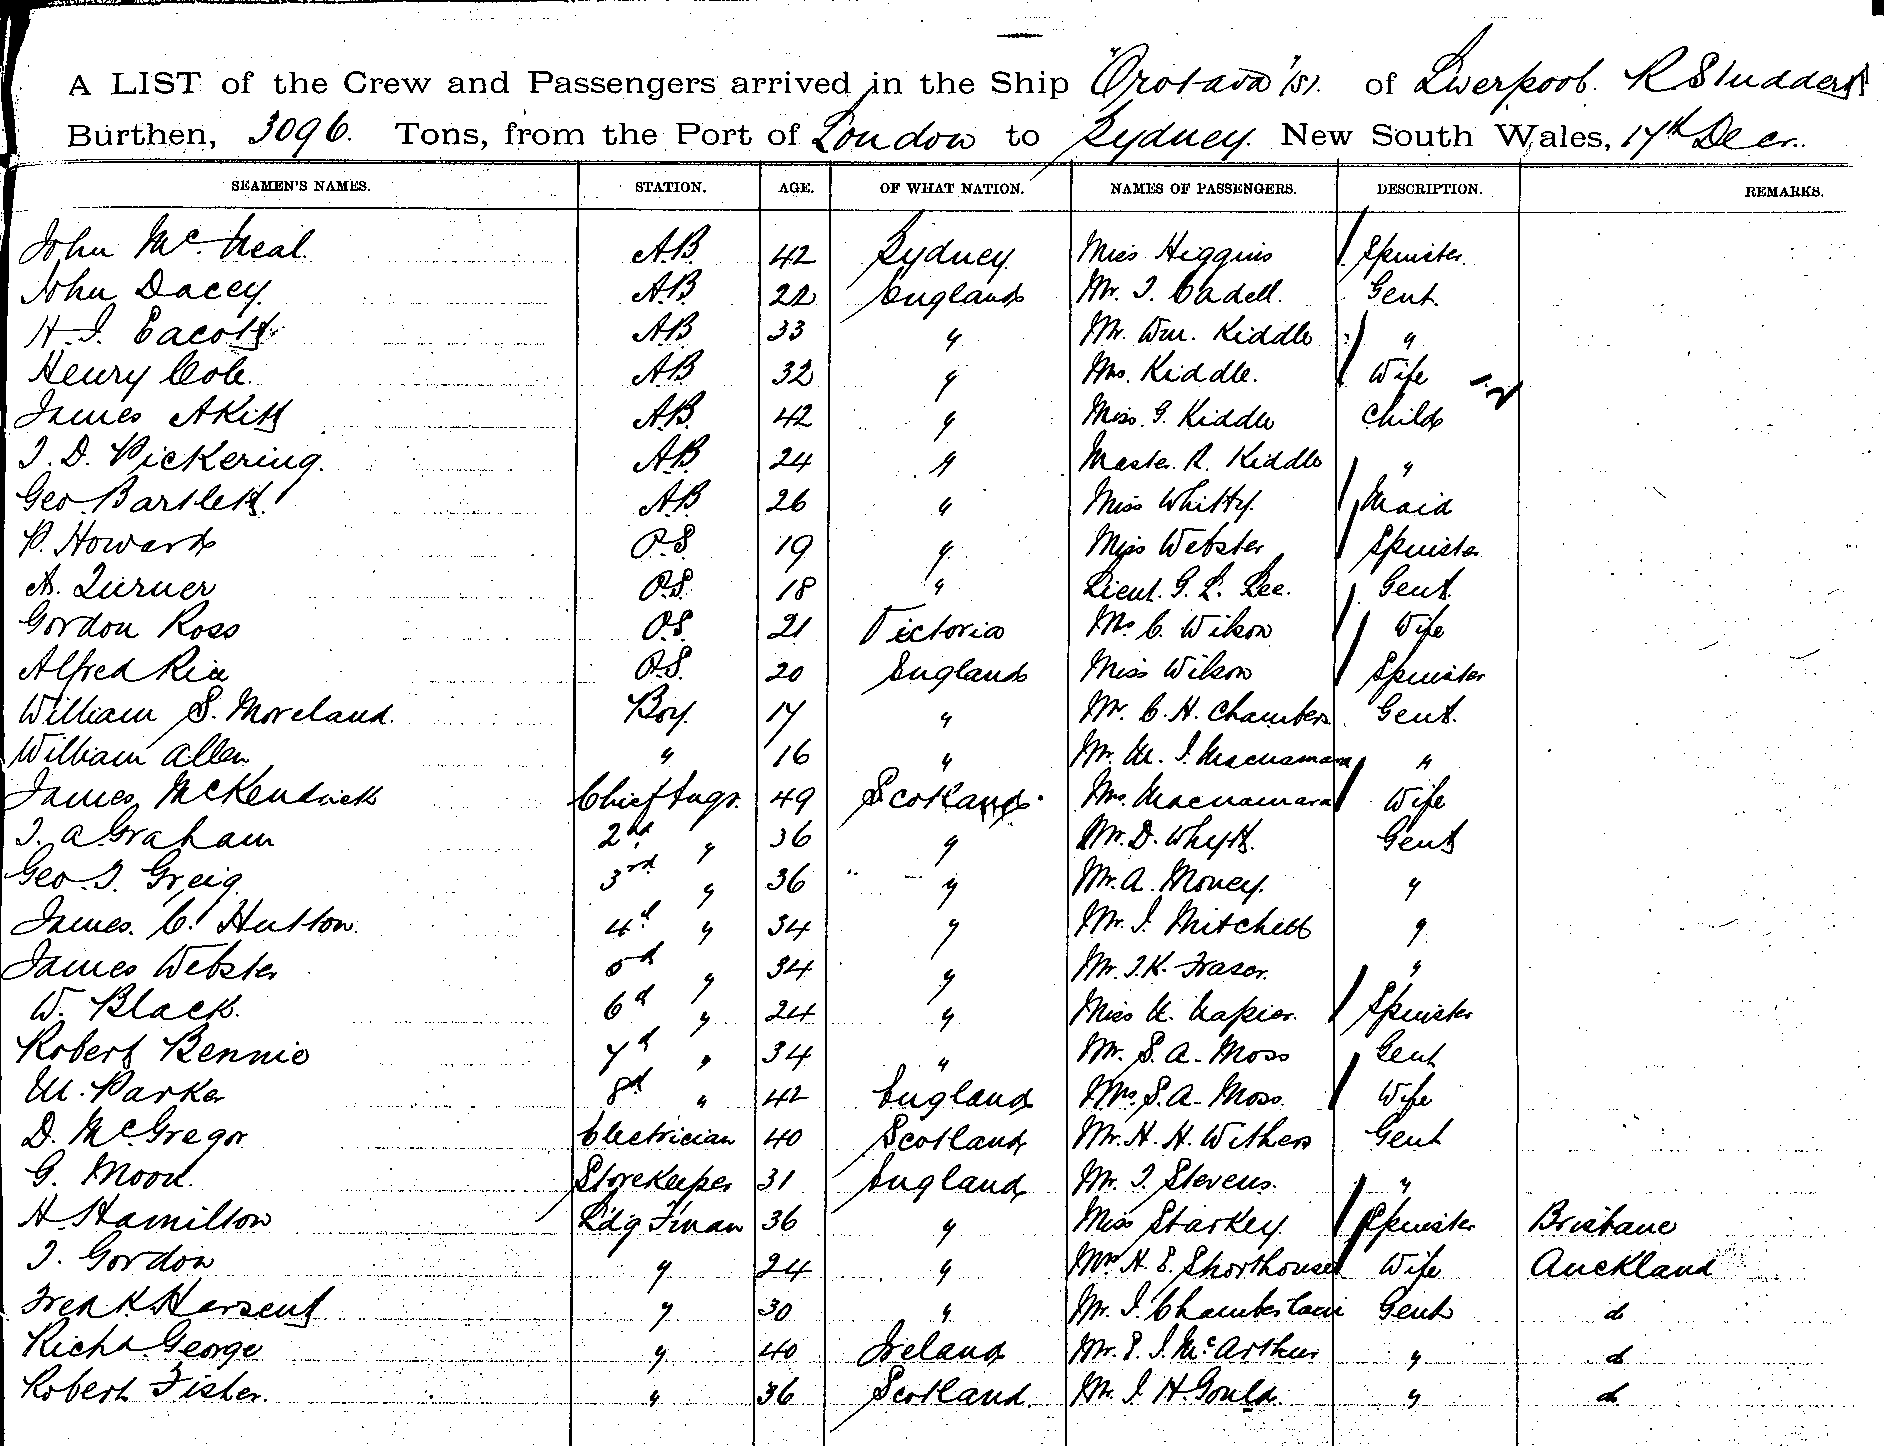 A LIST of the Crew and Passengers arrived in the Ship "Orotava" /s/. of Liverpool. R Studdert
Burthen, 3096. Tons, from the Port of London to Sydney. New South Wales, 17th Decr.
SEAMEN'S NAMES. STATION. AGE. OF WHAT NATION. NAMES OF PASSENGERS. DESCRIPTION. REMARKS.
John McNeal. A.B. 42 Sydney Miss Higgins Spinster.
John Dacey A.B. 22 England Mr. J. Cadell. Gent.
H. J. Eacott A.B 33 " Mr. Wm. Kiddle "
Henry Cole. A.B 32 " Mrs. Kiddle. Wife
James AKitt A.B. 42 " Miss. G. Kiddle Child
J. D. Pickering. A.B. 24 " Master. R. Kiddle "
Geo Bartlett. A.B 26 " Miss Whitty. Maid
P. Howard O.S. 19 " Miss Webster Spinster
A. Turner O.S. 18 " Lieut. G. L. Lee. Gent.
Gordon Ross O.S. 21 Victoria Mrs C. Wilson Wife
Alfred Rice O.S. 20 England Miss Wilson Spinster
William S. Moreland. Boy. 17 " Mr. C. H. Chambers Gent.
William Allen " 16 " Mr. M. J. Macnamara "
James McKendrick Chief Engr. 49 Scotland Mrs. Macnamara Wife
J. A Graham 2nd " 36 " Mr. D. Whyte. Gent
Geo. J. Greig. 3rd " 36 " Mr. A. Money. "
James. C. Hutton. 4th " 34 " Mr. J. Mitchell "
James Webster 5th " 34 " Mr. J. K. Fraser. "
W. Black. 6th " 24 " Miss M. Napier. Spinster
Robert Rennie 7th " 34 " Mr. S. A. Moss Gent
M. Parker 8th " 42 England Mrs. S. A. Moss. Wife
D. McGregor Electrician 40 Scotland Mr. H. H. Withers Gent
G. Moon. Storekeeper 31 England Mr. J. Stevens. "
H. Hamilton Ldg Fman 36 " Miss Starkey. Spinster Brisbane
J. Gordon " 24 " Mrs H. E. Shorthouse Wife Auckland
Fredk Hersent " 30 " Mr. J. Chamberlain Gent do
Richd George " 40 Ireland Mr. E. J. McArthur " do
Robert Fisher. " 36 Scotland. Mr. J. H. Gould. " do